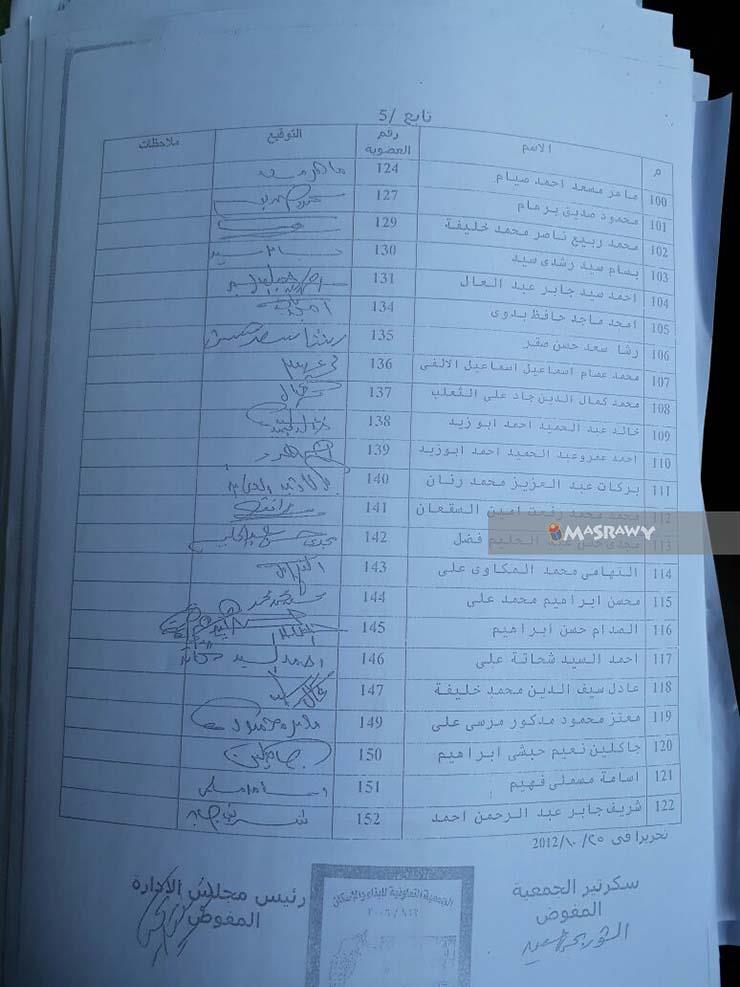 تابع /5
م الاسم رقم العضوية التوقيع ملاحظات
100 ماهر مسعد احمد صيام 124 ماهر مسعد
101 محمود صديق برهام 127
102 محمد ربيع ناصر محمد خليفة 129
103 بسام سيد رشدى سيد 130 بسام سيد
104 احمد سيد جابر عبد العال 131
105 امجد ماجد حافظ بدوى 134 امجد
106 رشا سعد حسن صقر 135 رشا سعد حسن
107 محمد عصام اسماعيل اسماعيل الالفى 136
108 محمد كمال الدين جاد على الثعلب 137
109 خالد عبد الحميد احمد ابو زيد 138
110 احمد عمرو عبد الحميد احمد ابوزيد 139
111 بركات عبد العزيز محمد رنان 140
112 محمد محمد رفعت امين السقعان 141
113 مجدى حسن عبد الحليم فضل 142
114 التهامى محمد المكاوى على 143
115 محسن ابراهيم محمد على 144
116 الهدام حسن ابراهيم 145
117 احمد السيد شحاتة على 146 احمد السيد شحاتة
118 عادل سيف الدين محمد خليفة 147
119 معتز محمود مدكور مرسى على 149 معتز محمود
120 جاكلين نعيم حبشى ابراهيم 150 جاكلين
121 اسامة مسعلى فهيم 151
122 شريف جابر عبد الرحمن احمد 152 شريف جابر
تحريرا فى ٢٥/ ١٠/ 2012
سكرتير الجمعية رئيس مجلس الإدارة
المفوض المفوض
الجمعية التعاونية للبناء والإسكان
MASRAWY